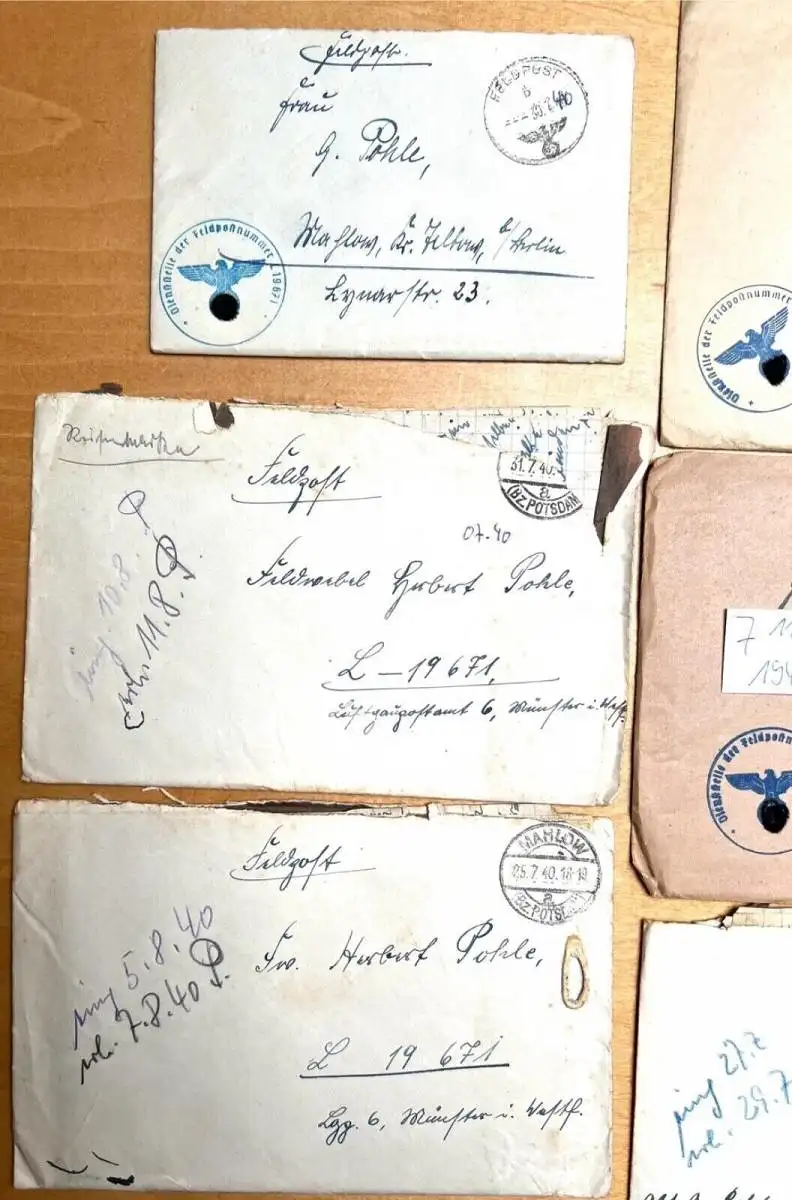 Feldpost.
FELDPOST
b
30.7.40
Frau
G. Pohle,
Mahlow, Kr. Teltow, b/Berlin
Lynarstr. 23.
Dienststelle der Feldpostnummer L 19671
Dienststelle der Feldpostnummer
Feldpost
31.7.40.
a
(BZ. POTSDAM
07.40
eing. 10.8.
erl. 11.8. P.
Feldwebel Herbert Pohle,
L – 19 671,
Luftgaupostamt 6, Münster i. Westf.
7 11
194
Dienststelle der Feldpostnumm
Feldpost
MAHLOW
25.7.40.18-19
a
(BZ. POTSDAM)
eing 5.8.40
erl. 7.8.40 P.
Fw. Herbert Pohle,
L 19 671
Lgp. 6, Münster i. Westf.
eing 27.7
erl. 29.7